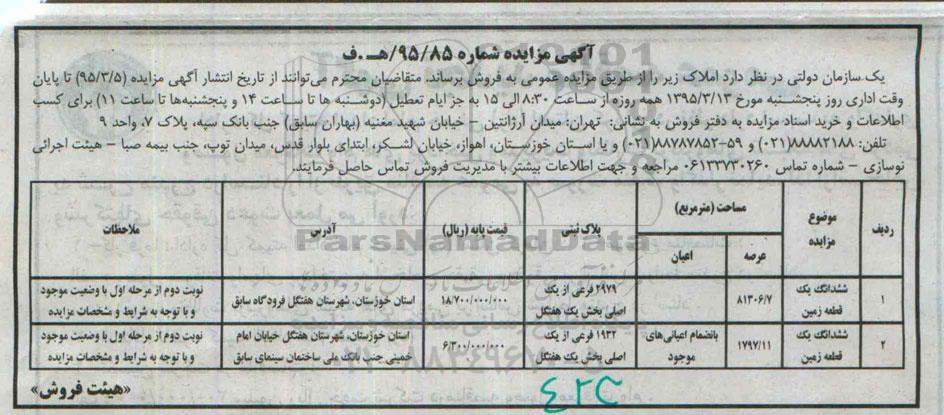 آگهی مزایده شماره ۹۵/۸۵/هـ.ف
یک سازمان دولتی در نظر دارد املاک زیر را از طریق مزایده عمومی به فروش برساند. متقاضیان محترم می‌توانند از تاریخ انتشار آگهی مزایده (۹۵/۳/۵) تا پایان
وقت اداری روز پنجشنبه مورخ ۱۳۹۵/۳/۱۳ همه روزه از ساعت ۸:۳۰ الی ۱۵ به جز ایام تعطیل (دوشنبه ها تا ساعت ۱۴ و پنجشنبه‌ها تا ساعت ۱۱) برای کسب
اطلاعات و خرید اسناد مزایده به دفتر فروش به نشانی: تهران: میدان آرژانتین – خیابان شهید مغنیه (بهاران سابق) جنب بانک سپه، پلاک ۷، واحد ۹
تلفن: ۸۸۸۸۲۱۸۸(۰۲۱) و ۵۹-۸۸۷۸۷۸۵۲(۰۲۱) و یا استان خوزستان، اهواز، خیابان لشکر، ابتدای بلوار قدس، میدان توپ، جنب بیمه صبا – هیئت اجرائی
نوسازی – شماره تماس ۰۶۱۳۳۷۳۰۲۶۰ مراجعه و جهت اطلاعات بیشتر با مدیریت فروش تماس حاصل فرمایند.
ردیف موضوع مزایده مساحت (مترمربع) پلاک ثبتی قیمت پایه (ریال) آدرس ملاحظات
عرصه اعیان
۱ ششدانگ یک قطعه زمین ۸۱۳۰۶/۷ ۲۹۷۹ فرعی از یک اصلی بخش یک هفتگل ۱۸/۷۰۰/۰۰۰/۰۰۰ استان خوزستان، شهرستان هفتگل فرودگاه سابق نوبت دوم از مرحله اول با وضعیت موجود و با توجه به شرایط و مشخصات مزایده
۲ ششدانگ یک قطعه زمین ۱۷۹۷/۱۱ بانضمام اعیانی‌های موجود ۱۹۳۲ فرعی از یک اصلی بخش یک هفتگل ۶/۳۰۰/۰۰۰/۰۰۰ استان خوزستان، شهرستان هفتگل خیابان امام خمینی جنب بانک ملی ساختمان سینمای سابق نوبت دوم از مرحله اول با وضعیت موجود و با توجه به شرایط و مشخصات مزایده
«هیئت فروش»
ParsNamadData